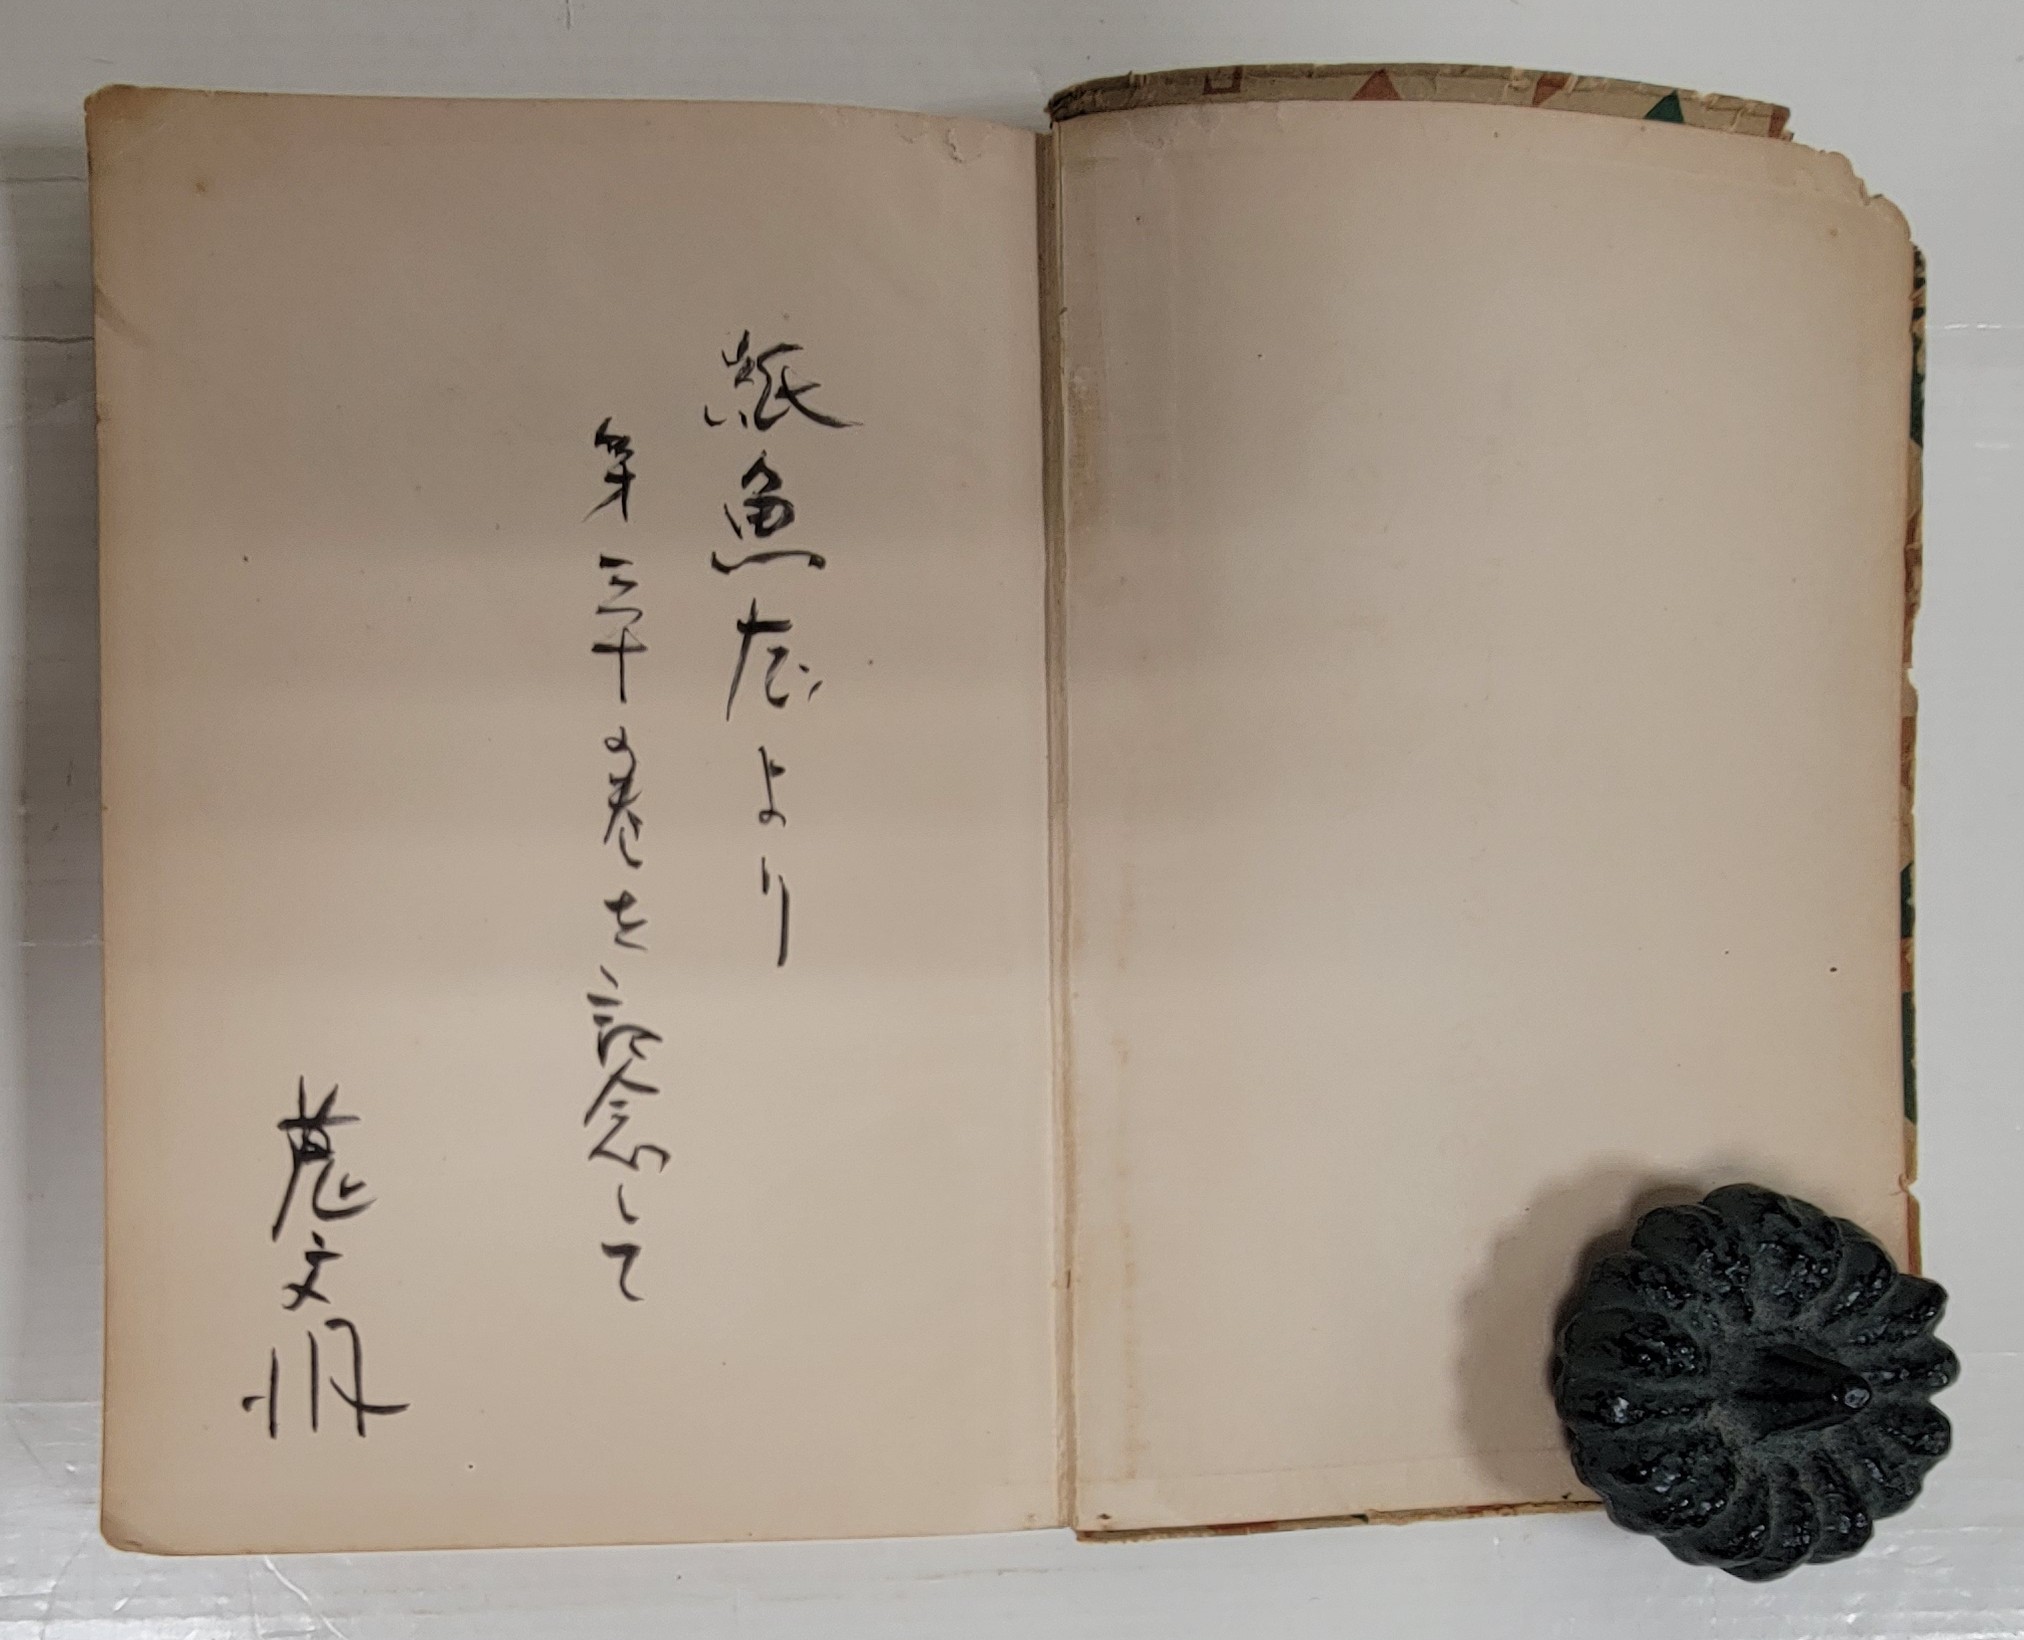 紙魚だより
第三十の巻を記念して